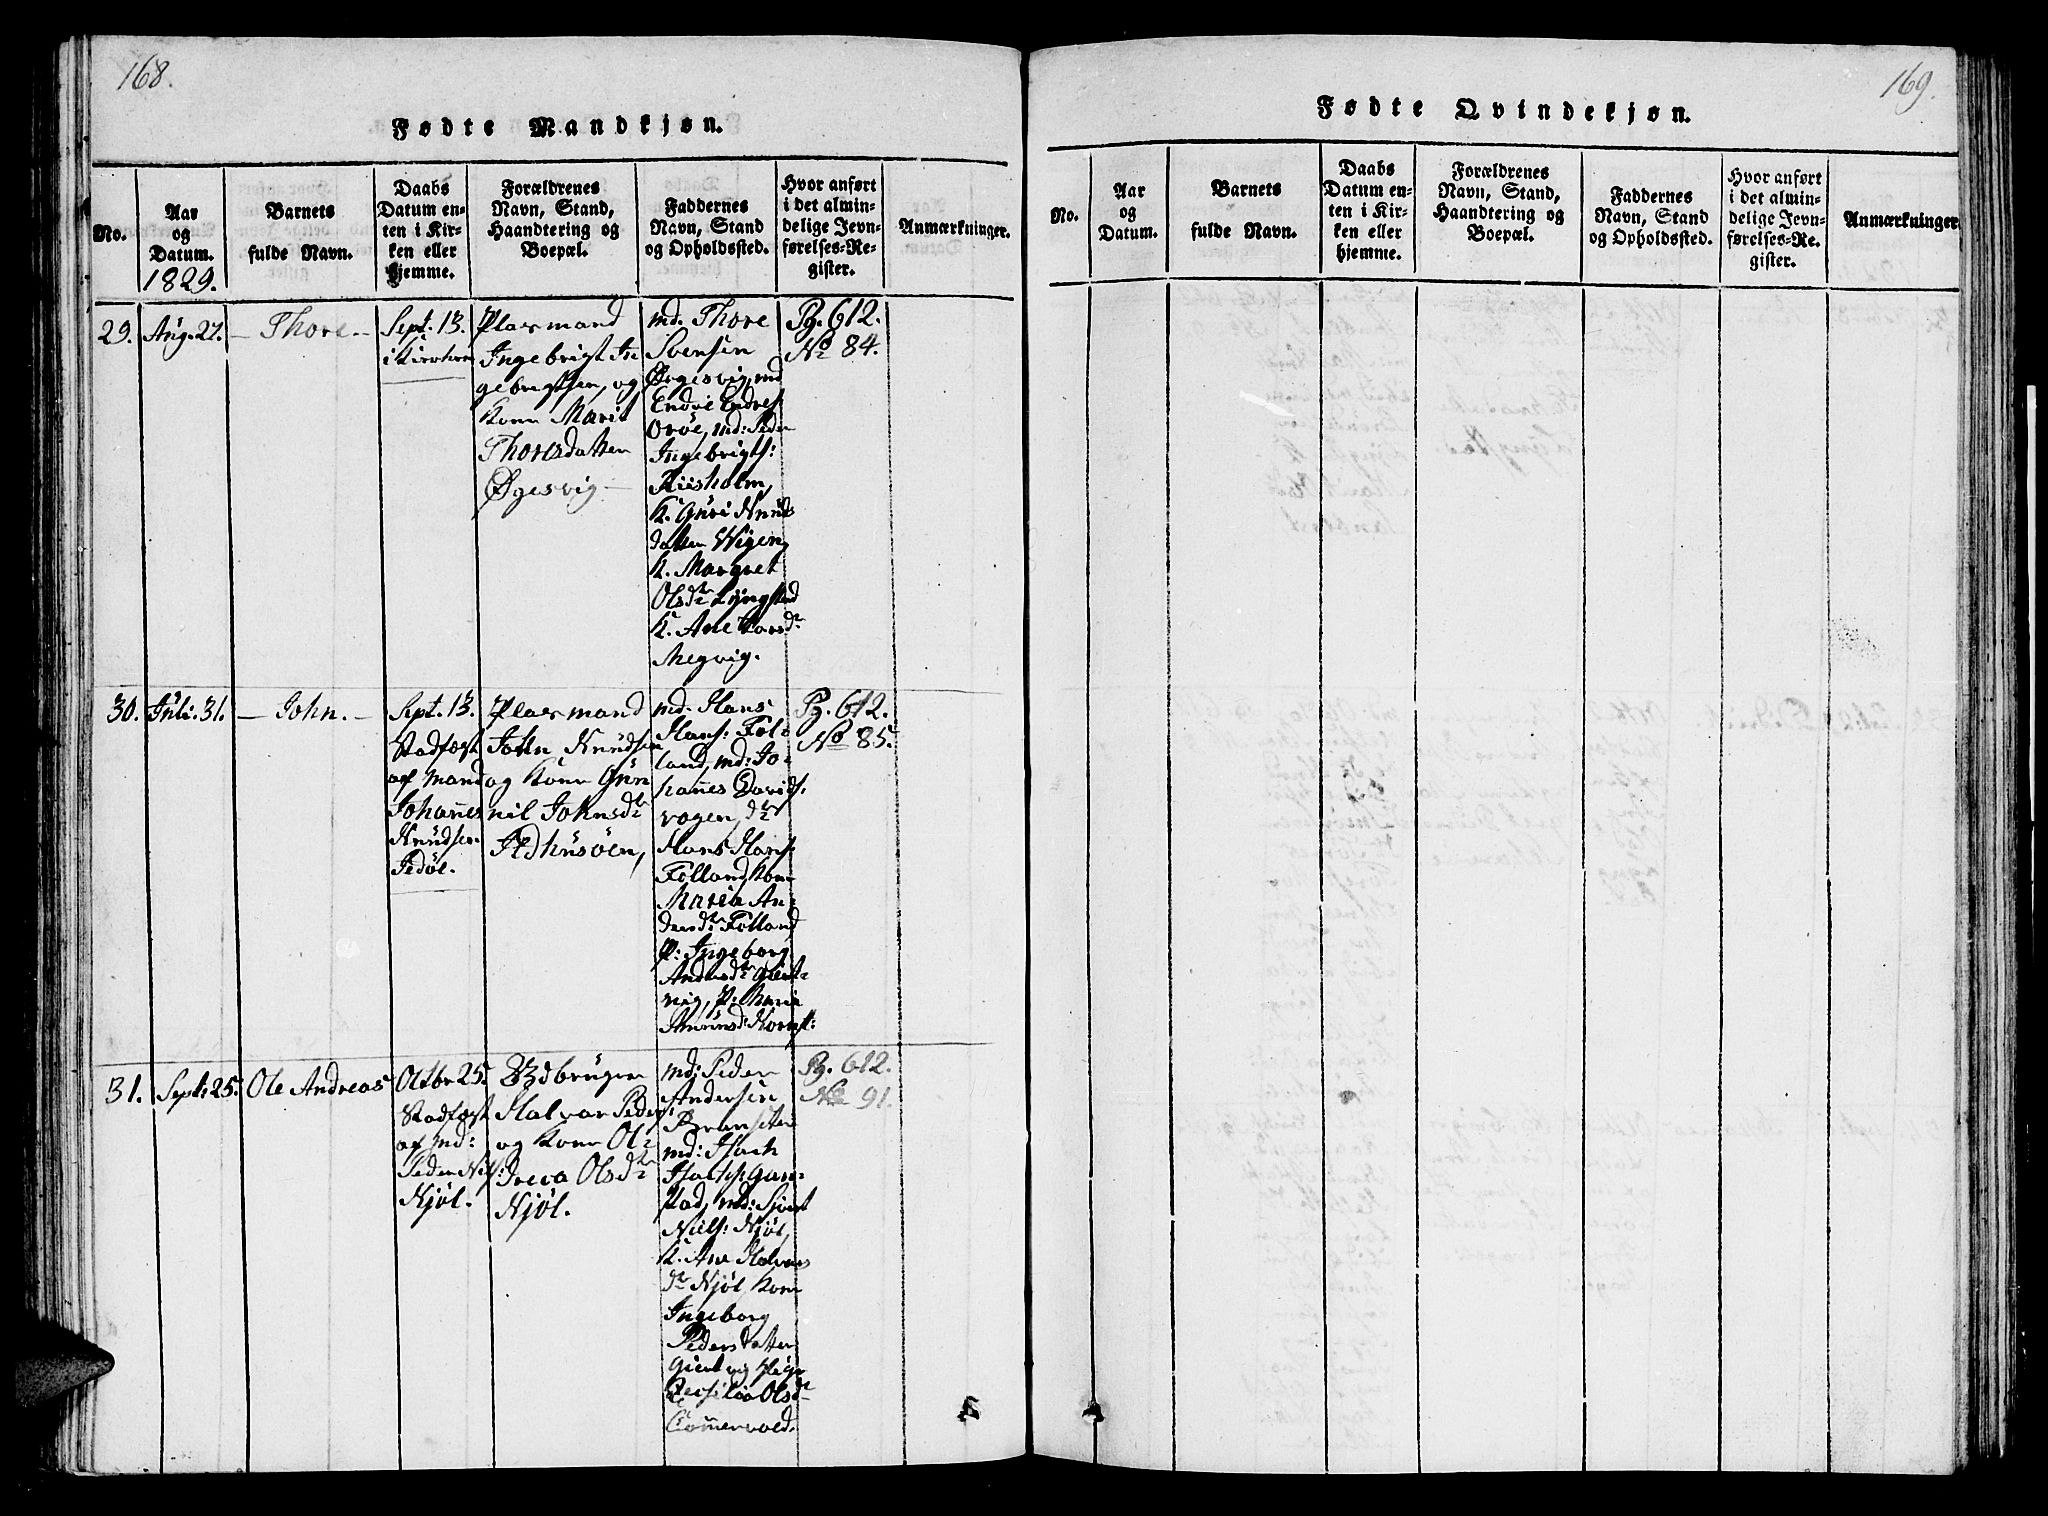 168.
Fødte Mandkjøn.
No.
Aar
og
Datum.
1829.
Barnets
fulde Navn.
Daabs
Datum en-
ten i Kir-
ken eller
hjemme.
Forældrenes
Navn, Stand,
Haandtering og
Boepæl.
Faddernes
Navn, Stand
og Opholdssted.
Hvor anført
i det almin-
delige Jevn-
førelses-Re-
gister.
Anmærkninger.
29.
Aug. 27.
- Thore -
Sept. 13.
i Kirken
Plasmand
Ingebrigt In
gebrigtsen, og
Kone Marit
Thoresdatter
Øgesvig -
md. Thore
Svensen
Ørgesvig, md
Endre Endres
Oröe, md: Peder
Ingebrigts:
Riisholm,
K. Guri Knuds
datter Wigen,
K. Margret
Olsdr Lyngstad
K. Ane Larsdr
Megvig.
Pg. 612.
No 84.
30.
Juli. 31.
- John. -
Sept. 13.
Stadfæst
af mand
Johannes
Knudsen
Fedøl.
Plasmand
John Knudsen
og Kone Gün
nil Johnsdr
Fedhusøen,
md. Hans
Hans: Fol-
land, md: Jo-
hannes Davids:
vagen, dr
Hans Hans:
Folland, Kone
Maria An-
dersdr Folland
P: Ingeborg
Andersdr Giert-
vig, P: Marie
Pg. 612.
No 85.
31.
Sept: 25.
Ole Andreas
Octbr 25.
Stadfæst
af md:
Peder Nils:
Kjøl.
Bdbruger
Halvar Peders:
og Kone Ol-
Kjøl.
md: Peder
Andersen
Brunsæter
md: Isach
stad, md: Sjvert
Niels: Kjøl,
K. Ane Halvars
dr Kjøl Kone
Ingeborg
Pedersdatter
Giertvig Pige
Cecsilia Olsdr
Pg. 612.
No 91.
169.
Fødte Qvindekjøn.
No.
Aar
og
Datum.
Barnets
fulde Navn.
Daabs
Datum en-
ten i Kir-
ken eller
hjemme.
Forældrenes
Navn, Stand,
Haandtering og
Boepæl.
Faddernes
Navn, Stand
og Opholdssted.
Hvor anført
i det almin-
delige Jevn-
førelses-Re-
gister.
Anmærkninger